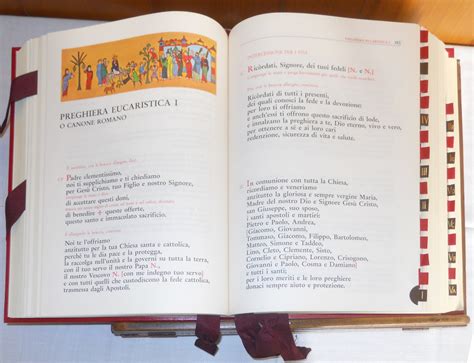 PREGHIERA EUCARISTICA I
O CANONE ROMANO
Padre clementissimo,
noi ti supplichiamo e ti chiediamo
per Gesù Cristo, tuo Figlio e nostro Signore,
di accettare questi doni,
di benedire ✠ queste offerte,
questo santo e immacolato sacrificio.
Noi te l'offriamo
anzitutto per la tua Chiesa santa e cattolica,
perché tu le dia pace e la protegga,
la raccolga nell'unità e la governi su tutta la terra,
con il tuo servo il nostro Papa N.,
il nostro Vescovo N.
e con tutti quelli che custodiscono la fede cattolica,
trasmessa dagli Apostoli.
INTERCESSIONE PER I VIVI
Ricordati, Signore, dei tuoi fedeli [N. e N.]
Ricòrdati di tutti i presenti,
dei quali conosci la fede e la devozione:
per loro ti offriamo
e anch'essi ti offrono questo sacrificio di lode,
e innalzano la preghiera a te, Dio eterno, vivo e vero,
per ottenere a sé e ai loro cari
redenzione, sicurezza di vita e salute.
In comunione con tutta la Chiesa,
ricordiamo e veneriamo
anzitutto la gloriosa e sempre vergine Maria,
Madre del nostro Dio e Signore Gesù Cristo,
san Giuseppe, suo sposo,
i santi apostoli e martiri:
Pietro e Paolo, Andrea,
[Giacomo, Giovanni,
Tommaso, Giacomo, Filippo, Bartolomeo,
Matteo, Simone e Taddeo,
Lino, Cleto, Clemente, Sisto,
Cornelio e Cipriano, Lorenzo, Crisogono,
Giovanni e Paolo, Cosma e Damiano]
e tutti i santi;
per i loro meriti e le loro preghiere
donaci sempre aiuto e protezione.
IV
I